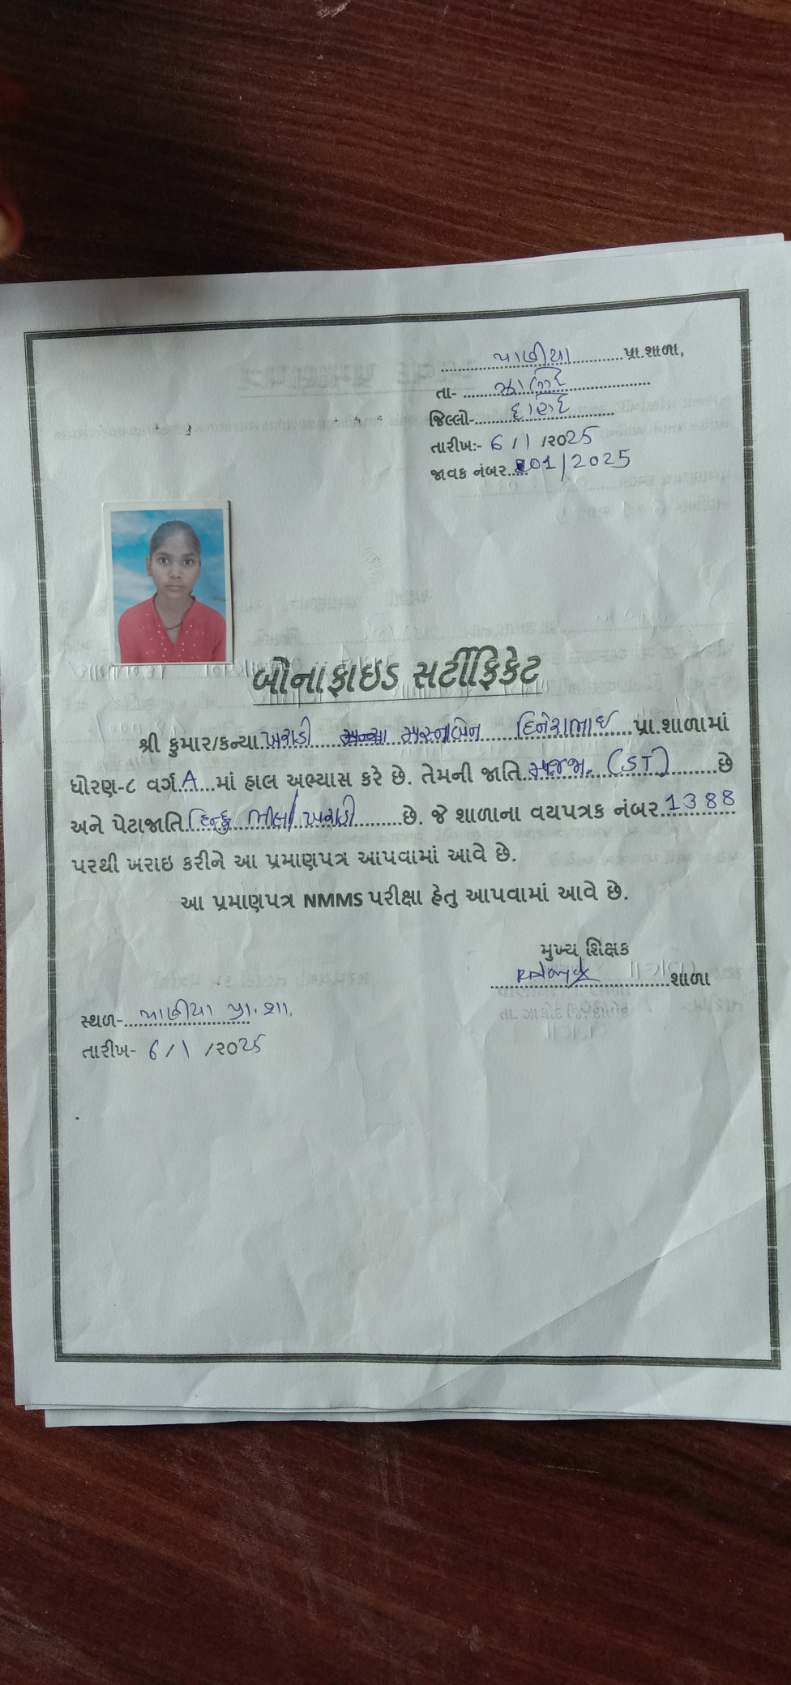 પાણીયા પ્રા.શાળા,
તા-
જિલ્લો- દાહોદ
તારીખ:- 6/1/૨૦25
જાવક નંબર 01/2025
બોનાફાઇડ સર્ટીફિકેટ
શ્રી કુમાર/કન્યા ખરાડી દિનેશભાઈ પ્રા.શાળામાં
ધોરણ-૮ વર્ગ A માં હાલ અભ્યાસ કરે છે. તેમની જાતિ (ST) છે
અને પેટાજાતિ હિન્દુ ભીલ/ખરાડી છે. જે શાળાના વયપત્રક નંબર 1388
પરથી ખરાઇ કરીને આ પ્રમાણપત્ર આપવામાં આવે છે.
આ પ્રમાણપત્ર NMMS પરીક્ષા હેતુ આપવામાં આવે છે.
મુખ્ય શિક્ષક
શાળા
સ્થળ- પાણીયા પ્રા.શા.
તારીખ- 6/1/૨૦25